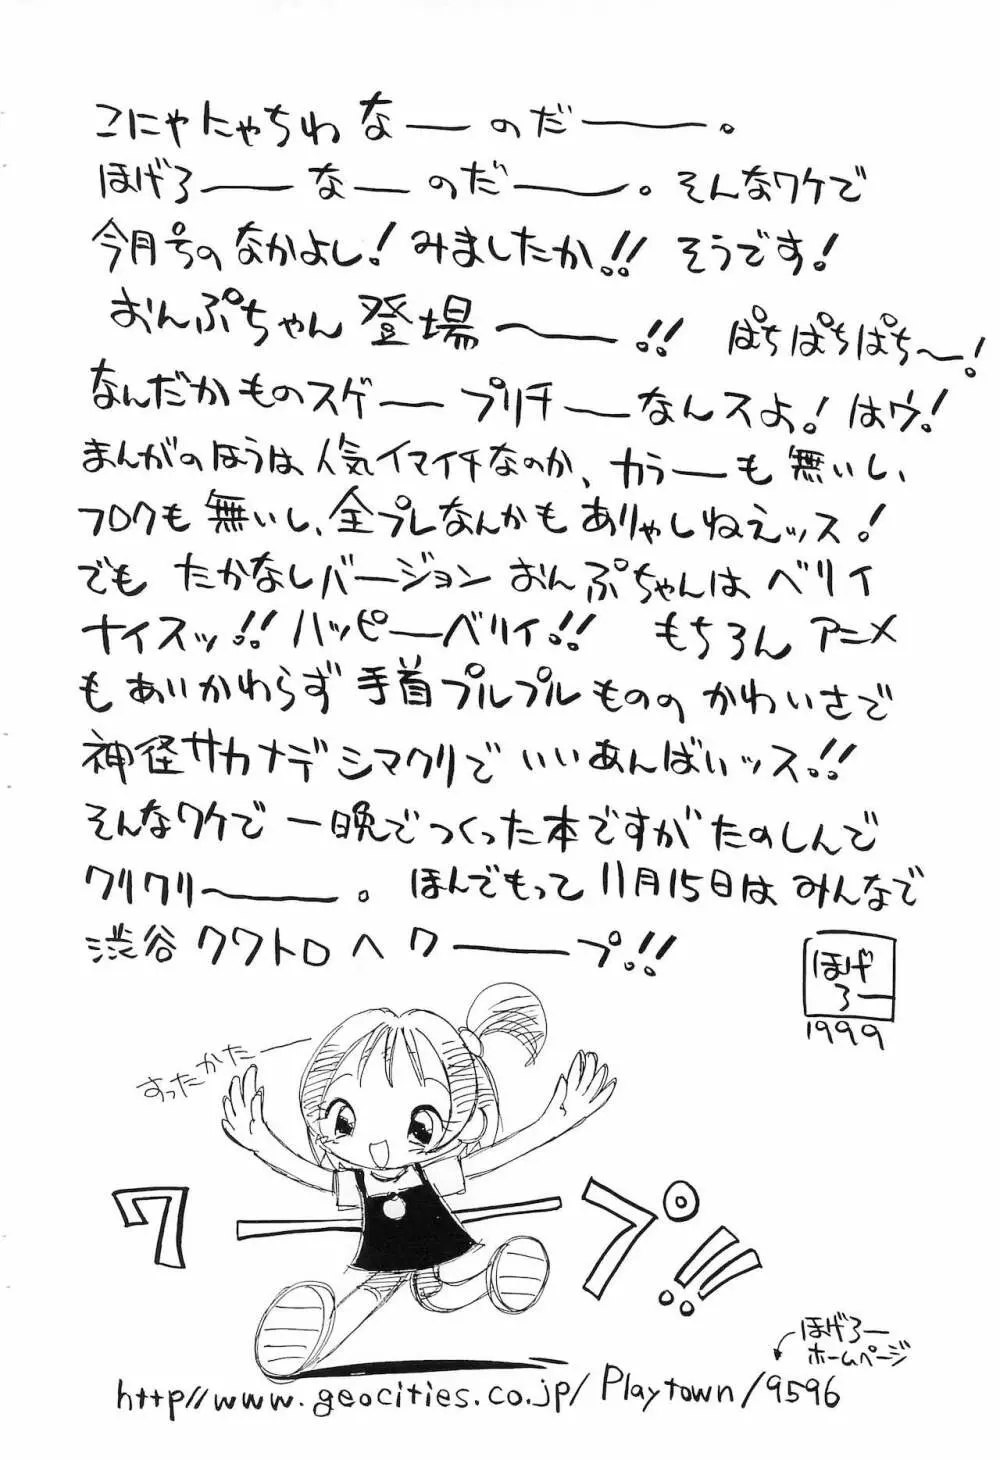 こにゃにゃちわ なーのだー。
ほげろー なーのだー。 そんなワケで
今月号の なかよし! みましたか!! そうです!
おんぷちゃん 登場 ー!! ぱちぱちぱち〜!
なんだか ものスゲー プリチーなんスよ! はウ!
まんがのほうは 人気イマイチなのか、 カラーも 無いし
フロクも 無いし、全プレなんかも ありゃしねえッス!
でも たかなしバージョン おんぷちゃんは ベリィ
ナイスッ!! ハッピーベリィ!! もちろん アニメ
も あいかわらず 手首プルプル ものの かわいさで
神経サカナデ シマクリで いいあんばいッス!!
そんなワケで 一晩で つくった本ですが たのしんで
クリクリー。 ほんでもって 11月15日は みんなで
渋谷 クワトロ へ ワープ!!
ほげ
ろー
1999
すったかたー
ワープ!!!
ほげろー
ホームページ
http//www.geocities.co.jp/Playtown/9596